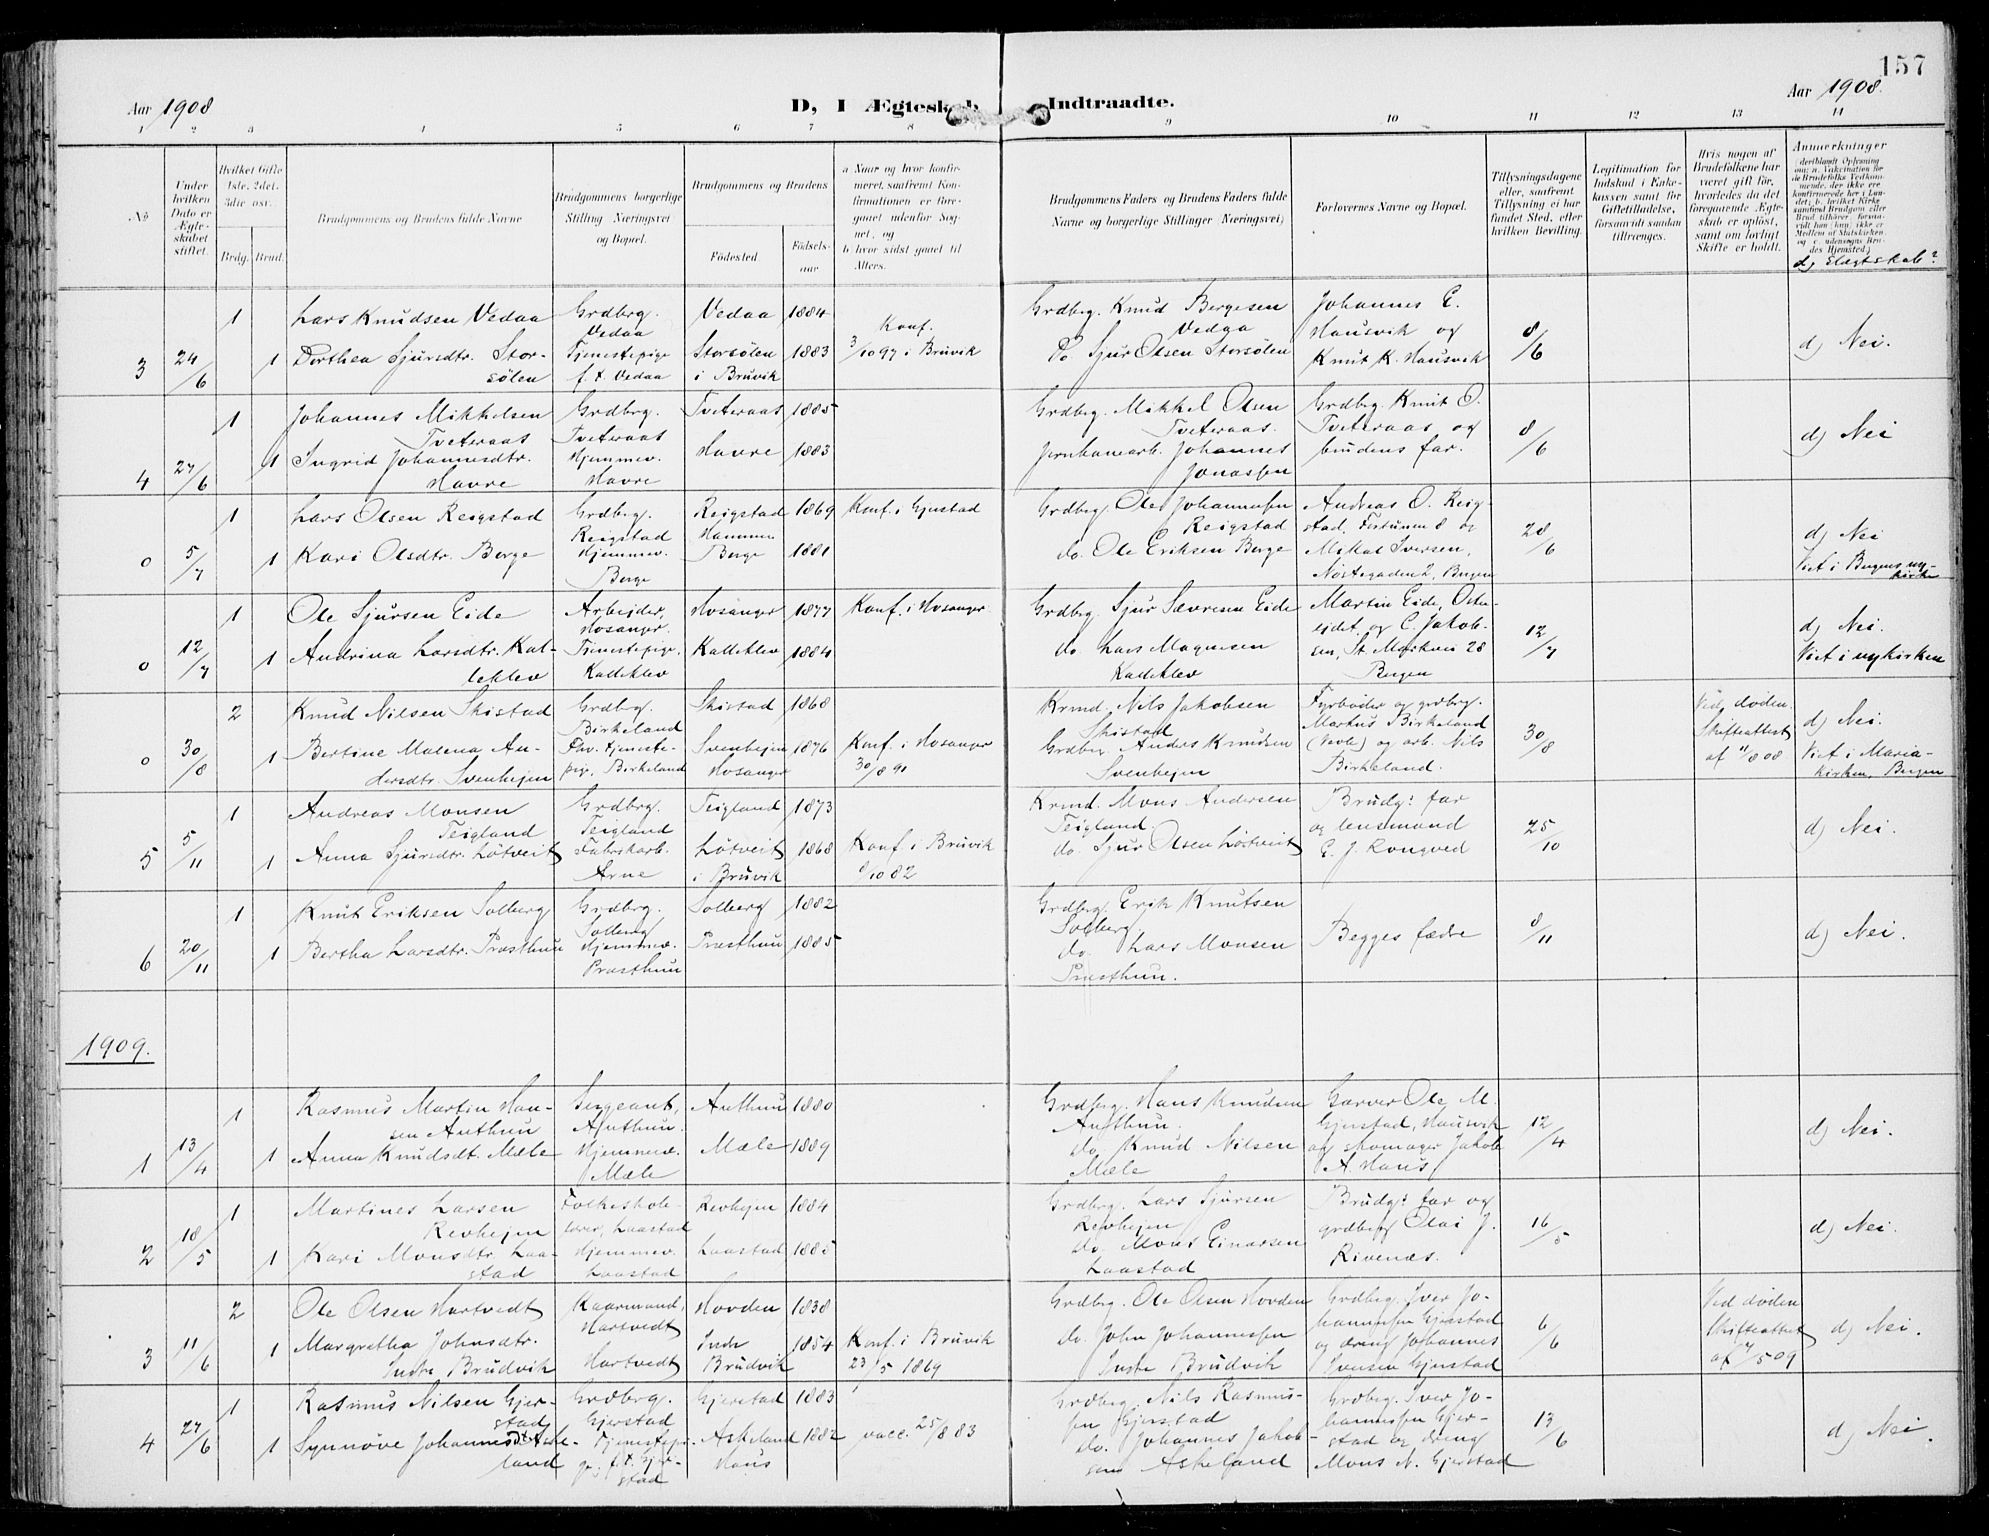 157
Aar 1908
D, I Ægteskab Indtraadte.
Aar 1908.
1 2 3 4 5 6 7 8 9 10 11 12 13 14
No
Under hvilken Dato er Ægteskabet stiftet.
Hvilket Gifte 1ste, 2det, 3die osv.
Brdg. Brud.
Brudgommens og Brudens fulde Navne
Brudgommens borgerlige Stilling Næringsvei og Bopæl.
Brudgommens og Brudens
Fødested. Fødselsaar
a Naar og hvor konfirmeret, saafremt Konfirmationen er foregaaet udenfor Sognet, og
b hvor sidst gaaet til Alters.
Brudgommens Faders og Brudens Faders fulde Navne og borgerlige Stillinger (Næringsvei)
Forlovernes Navne og Bopæl.
Tillysningsdagene eller, saafremt Tillysning ei har fundet Sted, efter hvilken Bevilling.
Legitimation for Indskud i Enkekassen samt for Giftetilladelse, forsaavidt saadan tiltrænges.
Hvis nogen af Brudefolkene har været gift før, hvorledes da det foregaaende Ægteskab er opløst, samt om lovligt Skifte er holdt.
Anmerkninger
d) Slægtskab?
3 24/6 1 Lars Knudsen Vedaa Grdbrg. Vedaa Vedaa 1884 Grdbrg. Knud Bergesen Vedaa Johannes E. Hausvik og Knut K. Hausvik 8/6 d) Nei.
1 Dorthea Sjursdtr. Storsølen Tjenestepige f.t. Vedaa Storsølen i Bruvik 1883 Konf. 3/10 97 i Bruvik Do Sjur Olsen Storsølen
4 27/6 1 Johannes Mikkelsen Tveteraas Grdbrg. Tveteraas Tveteraas 1885 Grdbrg. Mikkel Olsen Tveteraas. Grdbrg. Knut O. Tveteraas og brudens far. 8/6 d) Nei
1 Ingrid Johannesdtr. Havre Hjemmev. Havre Havre 1883 Jernbanearb. Johannes Jonassen
0 5/7 1 Lars Olsen Reigstad Grdbrg. Reigstad Reigstad Hammer 1869 Konf. i Gjerstad Grdbrg. Ole Johannessen Reigstad Andreas O. Reigstad, 8 og Mikal Iversen, Nøstegaden 2, Bergen 28/6 d) Nei Viet i Bergens nykirke
1 Kari Olsdtr. Borge Hjemmev. Borge Borge 1881 do. Ole Eriksen Borge
0 12/7 1 Ole Sjursen Eide Arbeider, Hosanger. Hosanger 1877 Konf. i Hosanger Grdbrg. Sjur Sævresen Eide Martin Eide, Ostereidet og C. Jakobsen, St. Markvei 28 Bergen 12/7 d) Nei. Viet i nykirken
1 Andrina Larsdtr. Kalleklev Tjenestepige. Kalleklev Kalleklev 1884 do. Lars Magnesen Kalleklev
0 30/8 2 Knud Nilsen Skistad Grdbrg. Birkeland Skistad 1868 Krmd. Nils Jakobsen Skistad Fyrbøder og grdbrg. Martus Birkeland og arb. Nils Birkeland. 30/8 Ved døden. Skifteattest af 11/8 08 d) Nei. Viet i Mariakirken, Bergen
1 Bertine Malena Andersdtr. Svenhejen Fhv. tjenestepige. Birkeland Svenhejen Hosanger 1876 Konf. i Hosanger 30/8 91 Grdbrg. Anders Knudsen Svenhejen
5 5/11 1 Andreas Monsen Teigland Grdbrg. Teigland Teigland 1873 Krmd. Mons Andersen Teigland Brudg: far og lensmand E. J. Rongved 25/10 d) Nei.
1 Anna Sjursdtr. Løtveit Fabrikarb. Arne Løtveit i Bruvik 1868 Konf. i Bruvik 8/10 82 do. Sjur Olsen Løtveit
6 20/11 1 Knut Eriksen Solberg Grdbrg. Solberg Solberg 1882 Grdbrg. Erik Knutsen Solberg Begges fædre 8/11 d) Nei.
1 Bertha Larsdtr. Præsthun Hjemmev. Præsthun Præsthun 1885 do. Lars Monsen Præsthun.
1909.
1 13/4 1 Rasmus Martin Hansen Authun Sergeant, Authun. Authun 1880 Grdbrg. Hans Knudsen Authun. Garver Ole M. Gjerstad, Hausvik og skomager Jakob A Haus 12/4 d) Nei.
1 Anna Knudsdt. Mæle Hjemmev. Mæle Mæle 1889 do. Knud Nilsen Mæle
2 18/5 1 Martines Larsen Revhejen Folkeskolelærer, Laastad Revhejen 1884 Grdbrg. Lars Sjursen Revhejen Brudg: far og grdbrg Olai J. Rivenæs. 16/5 d) Nei.
1 Kari Monsdtr. Laastad Hjemmev. Laastad Laastad 1885 do. Mons Einarsen Laastad
3 11/6 2 Ole Olsen Hartvedt Kaarmand, Hartvedt Hovden 1838 Grdbrg. Ole Olsen Hovden Grdbrg. Iver Johannessen Gjerstad og dreng Johannes Iversen Gjerstad 6/6 Ved døden Skifteattest af 7/5 09 d) Nei.
1 Margretha Johnsdtr. Indre Brudvik Hartvedt Indr Brudvik 1854 Konf. i Bruvik 23/5 1869 do. John Johannessen Indre Brudvik
4 27/6 1 Rasmus Nilsen Gjerstad Grdbrg. Gjerstad Gjerstad 1883 Grdbrg. Nils Rasmussen Gjerstad Grdbrg. Iver Johannessen Gjerstad og dreng Mons N. Gjerstad 13/6 d) Nei.
1 Synnøve Johannesdt Askeland Tjenestepige, f.t. Gjerstad Askeland Haus 1882 vacc. 25/8 83 do. Johannes Jakobsen Askeland